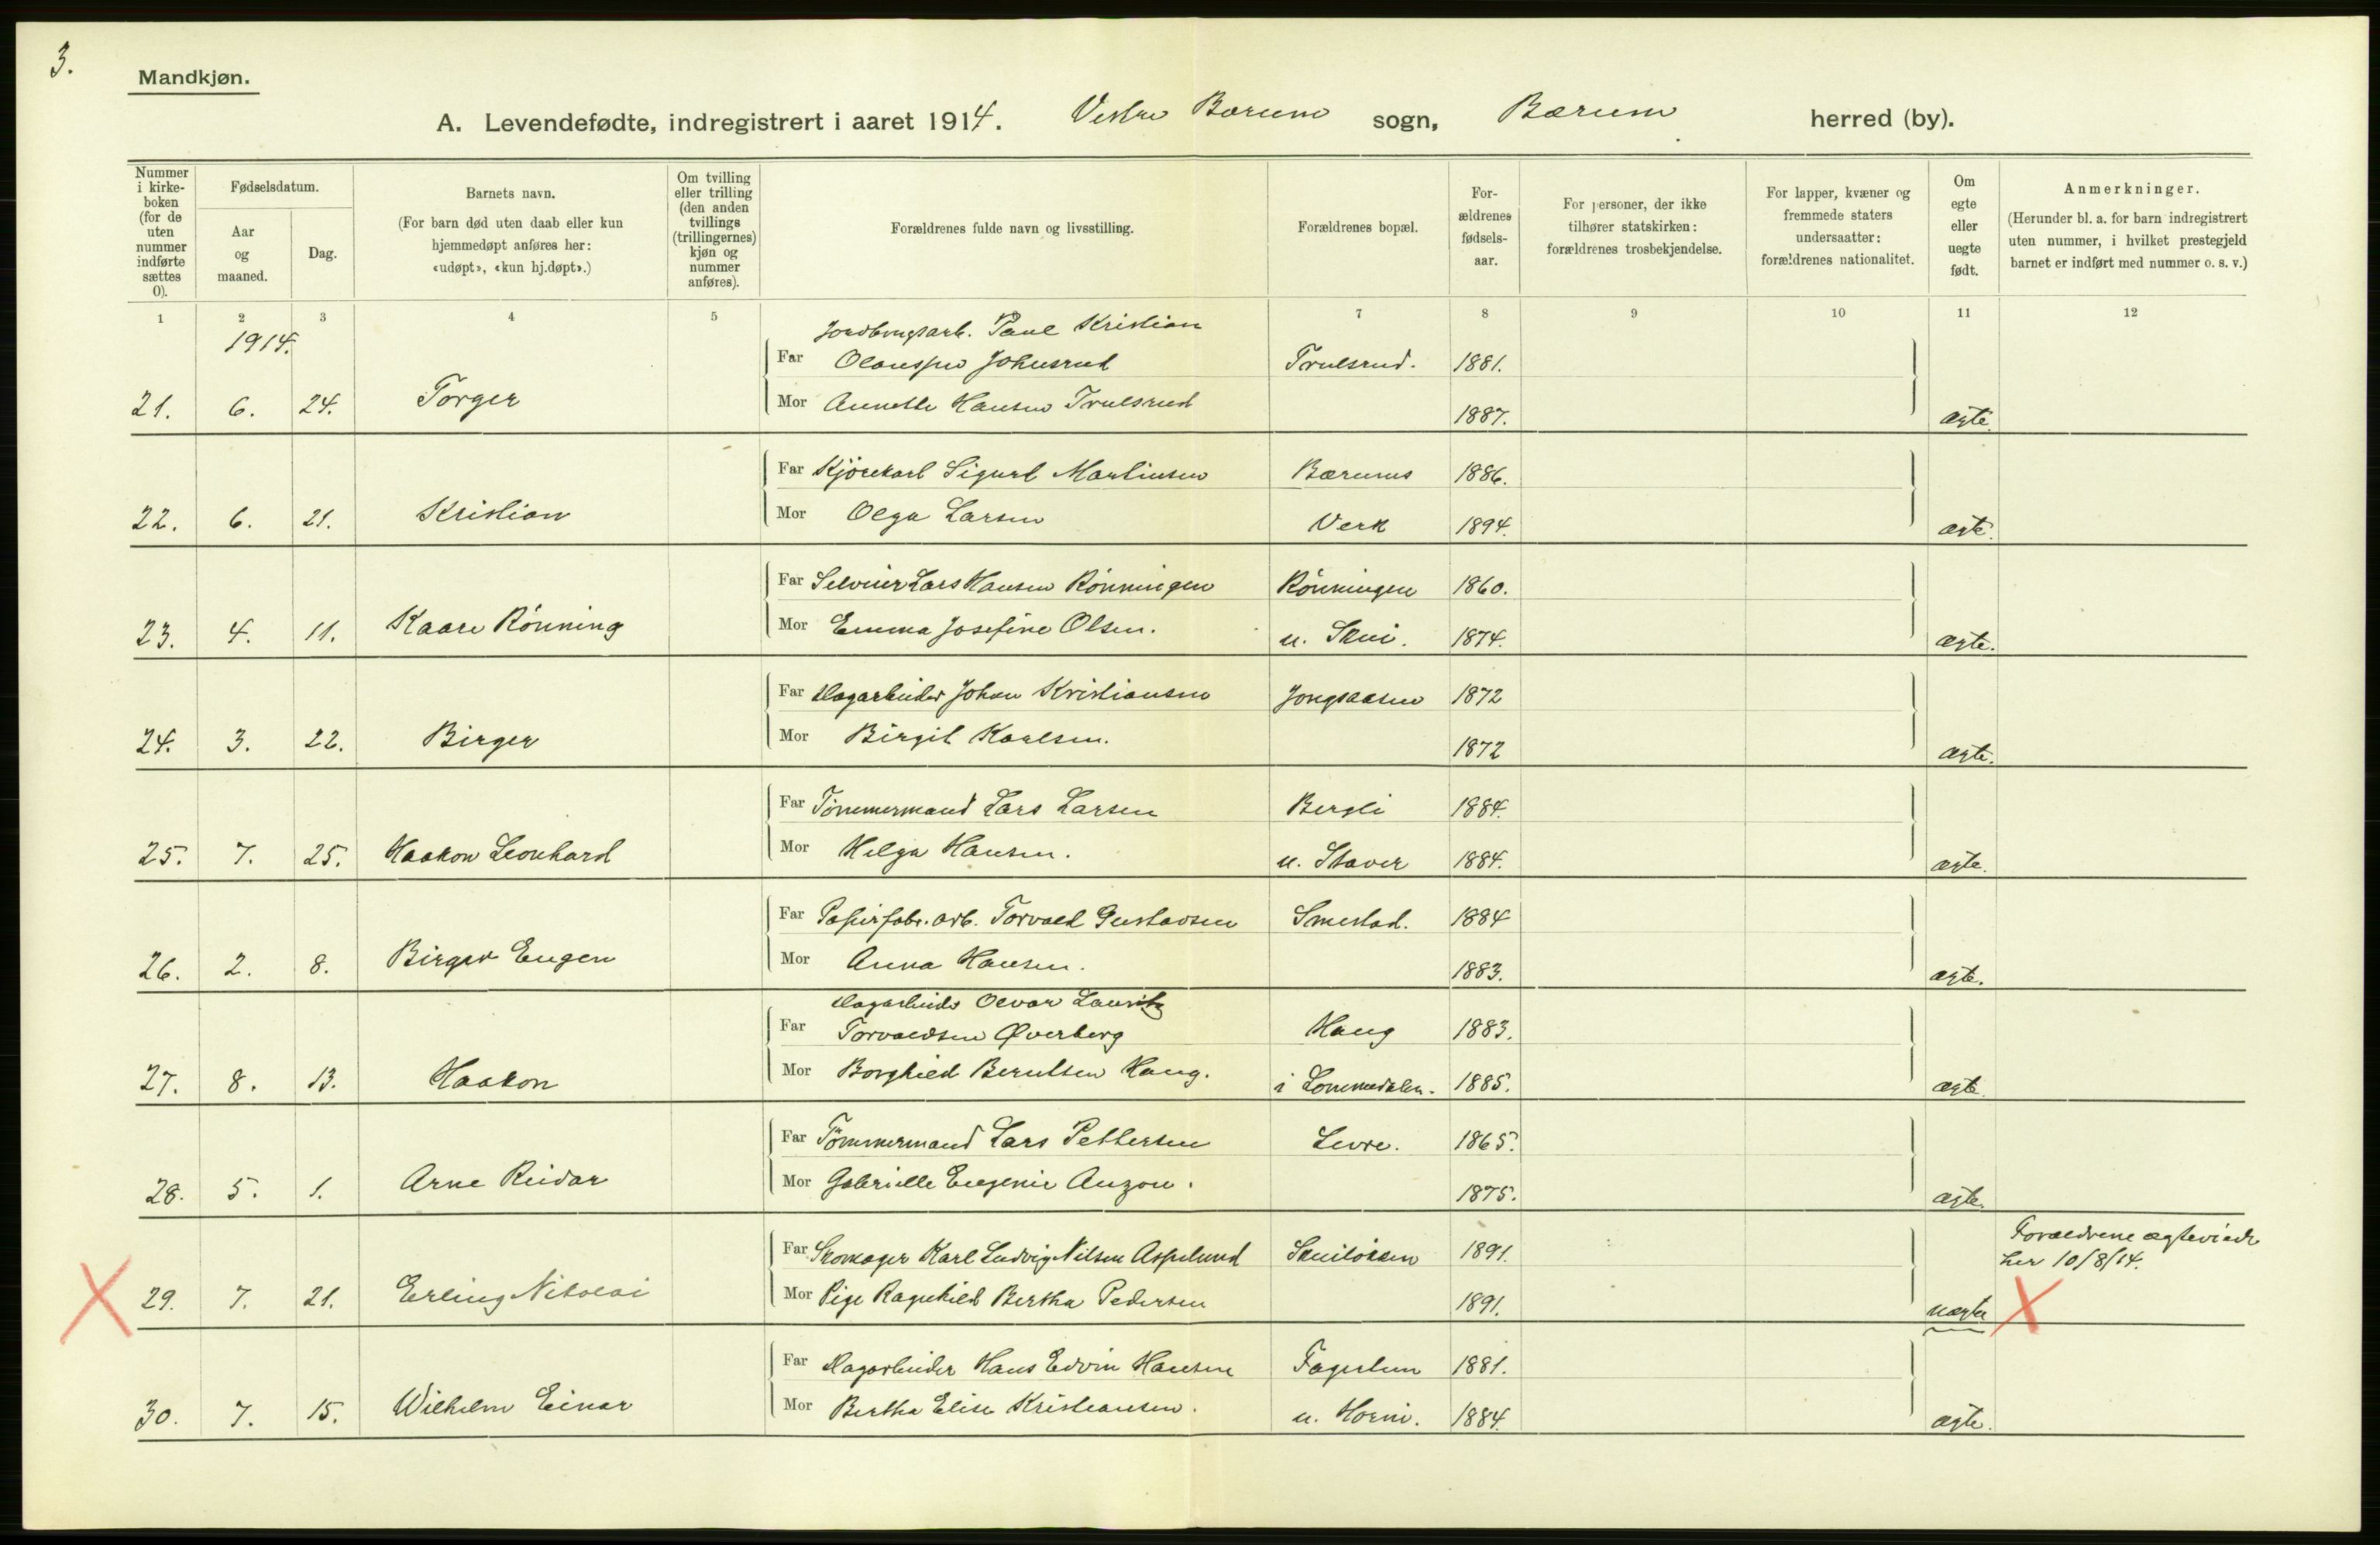 3.
Mandkjøn.
A. Levendefødte, indregistrert i aaret 1914. Vestre Bærum sogn, Bærum herred (by).
Nummer i kirke-boken (for de uten nummer indførte sættes 0).
Fødselsdatum.
Aar og maaned.
Dag.
Barnets navn.
(For barn død uten daab eller kun hjemmedøpt anføres her: «udøpt», «kun hj.døpt».)
Om tvilling eller trilling (den anden tvillings (trillingernes) kjøn og nummer anføres).
Forældrenes fulde navn og livsstilling.
Forældrenes bopæl.
For-ældrenes fødsels-aar.
For personer, der ikke tilhører statskirken: forældrenes trosbekjendelse.
For lapper, kvæner og fremmede staters undersaatter: forældrenes nationalitet.
Om egte eller uegte født.
Anmerkninger.
(Herunder bl. a. for barn indregistrert uten nummer, i hvilket prestegjeld barnet er indført med nummer o. s. v.)
1 2 3 4 5 7 8 9 10 11 12
1914.
Jordbrugsarb. Paul Kristian
Far Olaussen Johnsrud Trulsrud. 1881.
21. 6. 24. Torger Mor Annette Hansen Trulsrud 1887. ægte.
Far Kjørekarl Sigurd Martinsen Bærums 1886.
22. 6. 21. Kristian Mor Olga Larsen Verk 1894. ægte.
Far Selveier Lars Hansen Rönningen Rönningen 1860.
23. 4. 11. Kaare Rönning Mor Emma Josefine Olsen. u. Skui. 1874. ægte.
Far Dagarbeider Johan Kristiansen Jongsaasen 1872
24. 3. 22. Birger Mor Birgit Karlsen. 1872 ægte.
Far Tömmermand Lars Larsen Bergli 1884.
25. 7. 25. Haakon Leonhard Mor Helga Hansen. u. Staver 1884. ægte.
Far Papirfabr. arb. Torvald Gustavsen Smestad. 1884
26. 2. 8. Birger Eugen Mor Anna Hansen. 1883. ægte.
Dagarbeider Olvar Lauritz
Far Torvaldsen Øverberg Haug 1883.
27. 8. 13. Haakon Mor Borghild Berntsen Haug. i Lommedalen. 1885. ægte.
Far Tömmermand Lars Pettersen Levre. 1865.
28. 5. 1. Arne Reidar Mor Gabrielle Eugenie Auzou. 1875. ægte.
Far Skomager Karl Ludvig Nilsen Asplund Skuiløkken 1891. Forældrene ægteviede
her 10/8/14.
29. 7. 21. Erling Nikolai Mor Pige Ragnhild Bertha Pedersen 1891. uægte
Far Dagarbeider Hans Edvin Hansen Fagerlun 1881.
30. 7. 15. Wilhelm Einar Mor Bertha Elise Kristiansen. u. Horni. 1884. ægte.